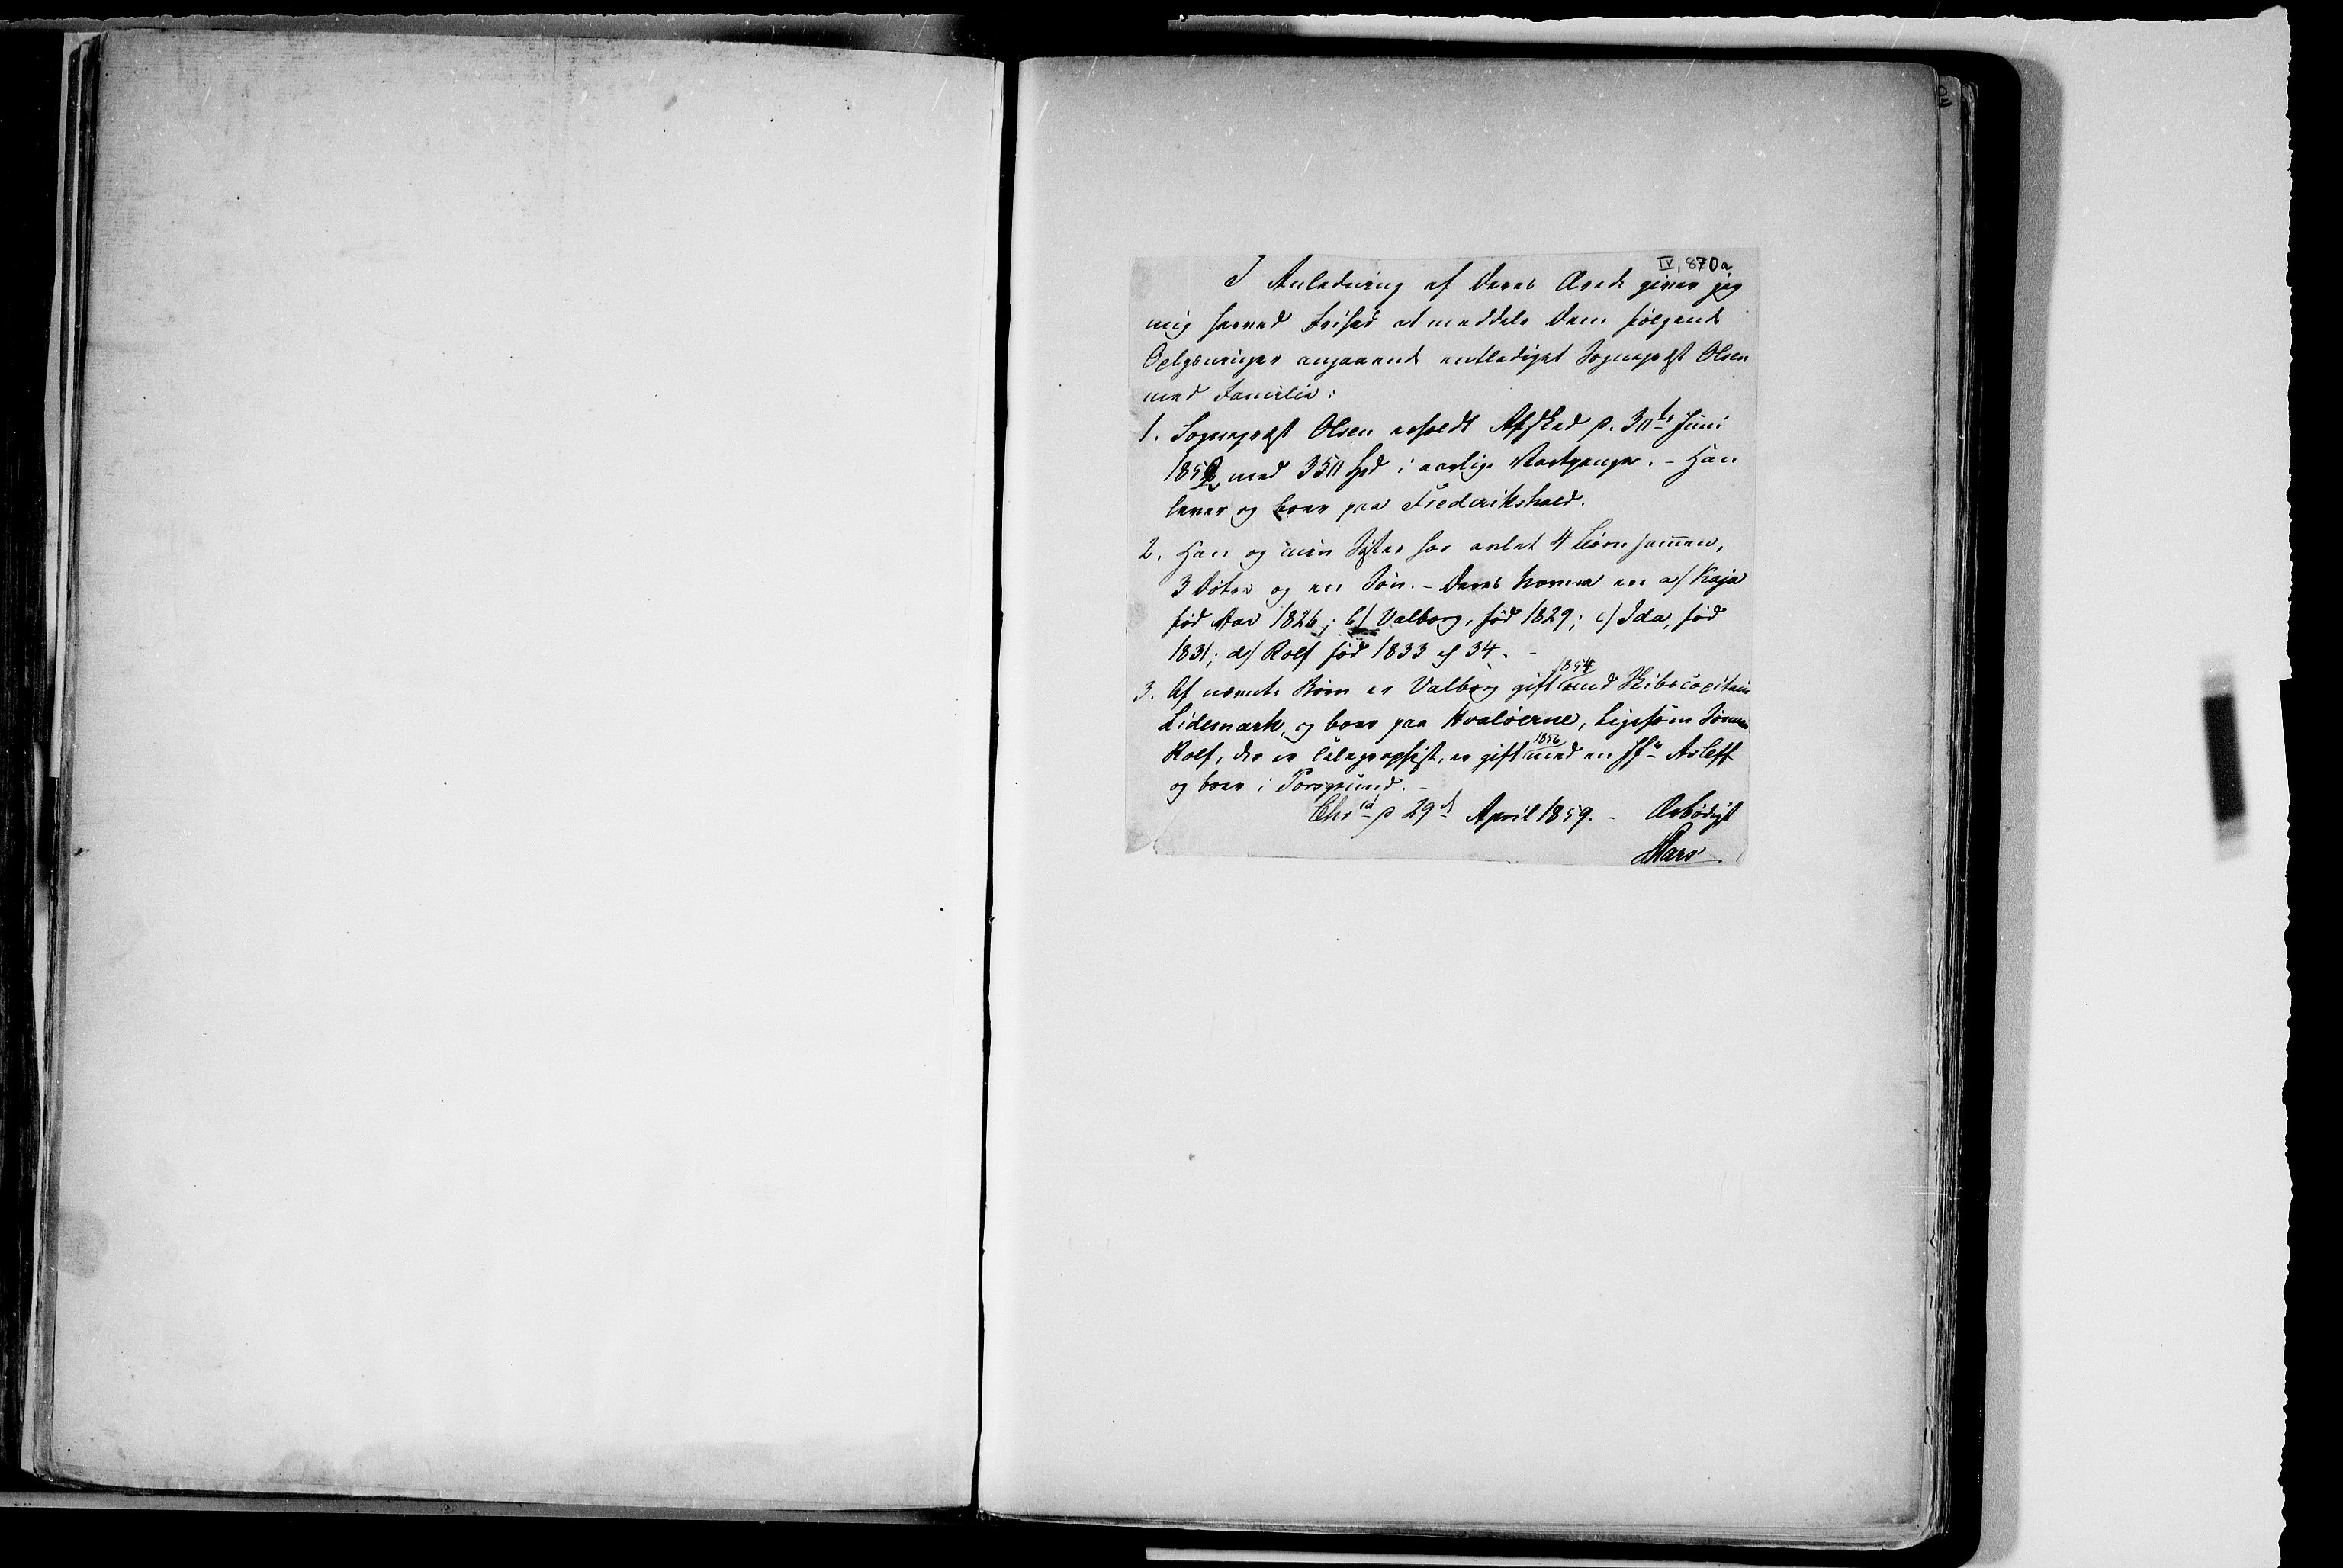 IV, 870a
I Anledning af Deres Ærede giver jeg
mig herved Frihed at meddele Dem følgende
Oplysninger angaaende entlediget Sognepræst Olsen
med Familie:
1. Sognepræst Olsen erholdt Afsked p. 30te Juni
1852 med 350 Spd i aarlige Vartpenge. - Han
lever og boer paa Frederikshald.
2. Han og min Søster har avlet 4 Børn sammen,
3 Døtre og en Søn. - Deres Navne ere a/ Kaja
født Aar 1826; b/ Valborg, født 1829; c/ Ida, født
1831; d/ Rolf født 1833 ell 34. -
3. Af nævnte Børn er Valborg gift 1854 med Skibscapitain
Lidemark, og boer paa Hvaløerne, ligesom Sønnen
Rolf, der er Telegraphist, er gift 1856 med en Jfr Asleff
og boer i Porsgrund. -
Chria p 29d April 1859. - Ærbødigst